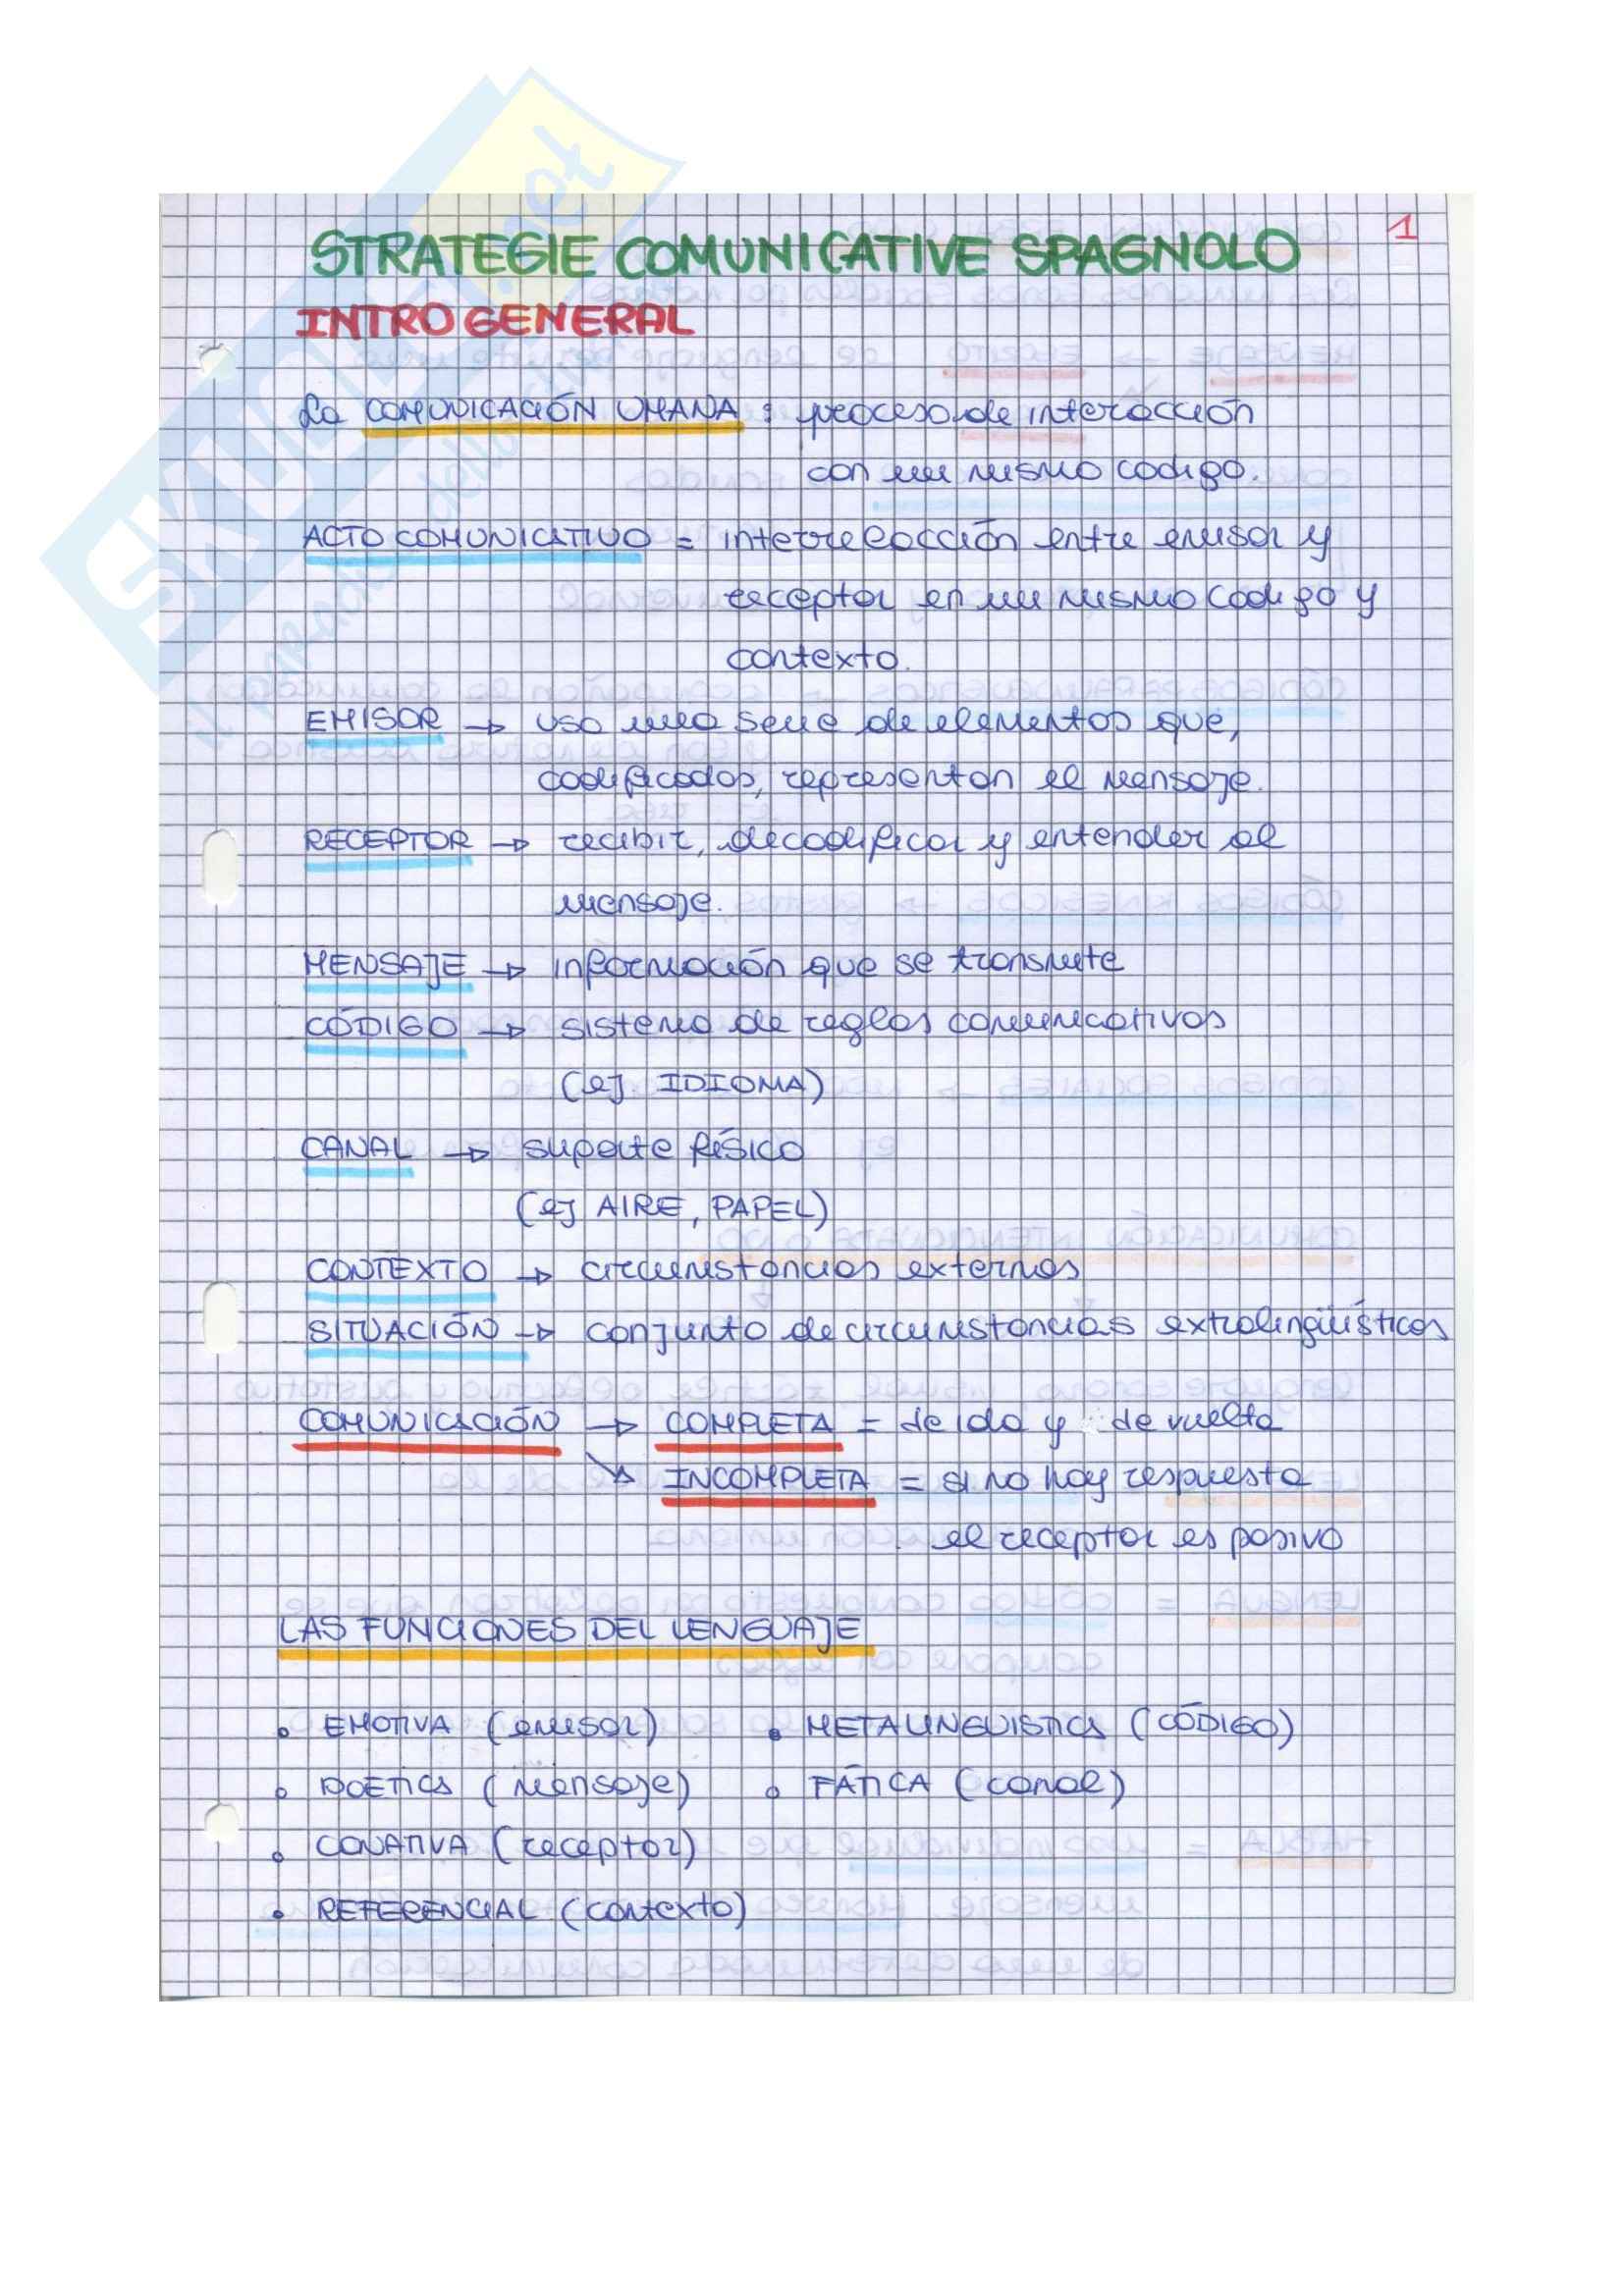 1
STRATEGIE COMUNICATIVE SPAGNOLO
INTRO GENERAL
La COMUNICACIÓN UMANA : proceso de interacción
con un mismo codigo.
ACTO COMUNICATIVO = interrelacción entre emisor y
receptor en un mismo codigo y
contexto.
EMISOR → usa una serie de elementos que,
codificados, representan el mensaje.
RECEPTOR → recibir, decodificar y entender el
mensaje.
MENSAJE → información que se transmite
CÓDIGO → sistema de reglas comunicativas
(ej IDIOMA)
CANAL → suporte físico
(ej AIRE, PAPEL)
CONTEXTO → circunstancias externas
SITUACIÓN → conjunto de circunstancias extralingüísticas
COMUNICACIÓN → COMPLETA = de ida y de vuelta
↘ INCOMPLETA = si no hay respuesta
el receptor es pasivo
LAS FUNCIONES DEL LENGUAJE
• EMOTIVA (emisor) • METALINGUISTICA (CÓDIGO)
• POETICA (mensaje) • FÁTICA (canal)
• CONATIVA (receptor)
• REFERENCIAL (contexto)
SKUOLA.net